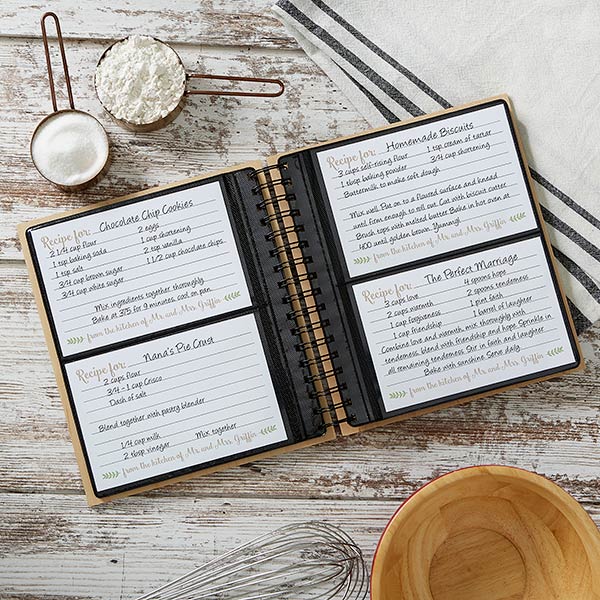 Recipe for: Chocolate Chip Cookies
2 1/4 cup flour 2 eggs
1 tsp baking soda 1 cup shortening
1 tsp salt 2 tsp vanilla
3/4 cup brown sugar 1 1/2 cup chocolate chips
3/4 cup white sugar
Mix ingredients together thoroughly
Bake at 375 for 9 minutes, cool on pan
from the kitchen of Mr. and Mrs. Griffin
Recipe for: Nana's Pie Crust
2 cups flour
3/4 - 1 cup Crisco
Dash of salt
Blend together with pastry blender
1/4 cup milk Mix together
2 tbsp vinegar
from the kitchen of Mr. and Mrs. Griffin
Recipe for: Homemade Biscuits
3 cups self-rising flour 1 tsp cream of tartar
1 tbsp baking powder 3/4 cup shortening
Buttermilk to make soft dough
Mix well. Put on to a floured surface and knead
until firm enough to roll out. Cut with biscuit cutter.
Brush tops with melted butter. Bake in hot oven at
400 until golden brown. Yummy!
from the kitchen of Mr. and Mrs. Griffin
Recipe for: The Perfect Marriage
3 cups love 4 spoons hope
2 cups warmth 2 spoons tenderness
1 cup forgiveness 1 pint faith
1 cup friendship 1 barrel of laughter
Combine love and warmth, mix thoroughly with
tenderness, blend with friendship and hope. Sprinkle in
all remaining tenderness. Stir in faith and laughter.
Bake with sunshine. Serve daily
from the kitchen of Mr. and Mrs. Griffin